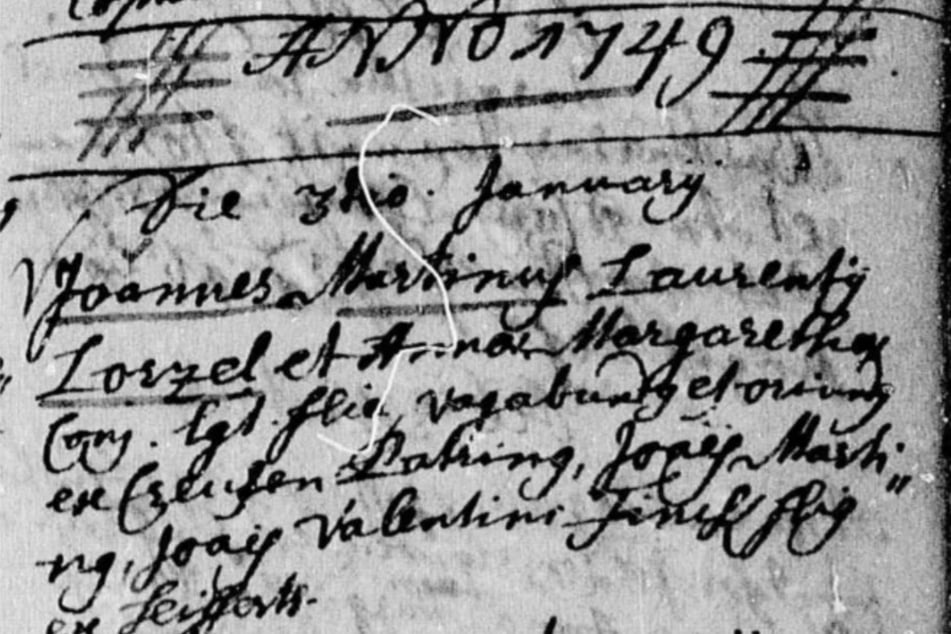 ANNO 1749
Die 3tio. January
Joannes Martinus Laurentij
Lorzel et Annae Margarethae
Conj. lgt. flig vagabund9 et oriund9
ex Creusen Patrin9, Joais Marti„
n9, Joais Valentini flig
ex Seifferts.